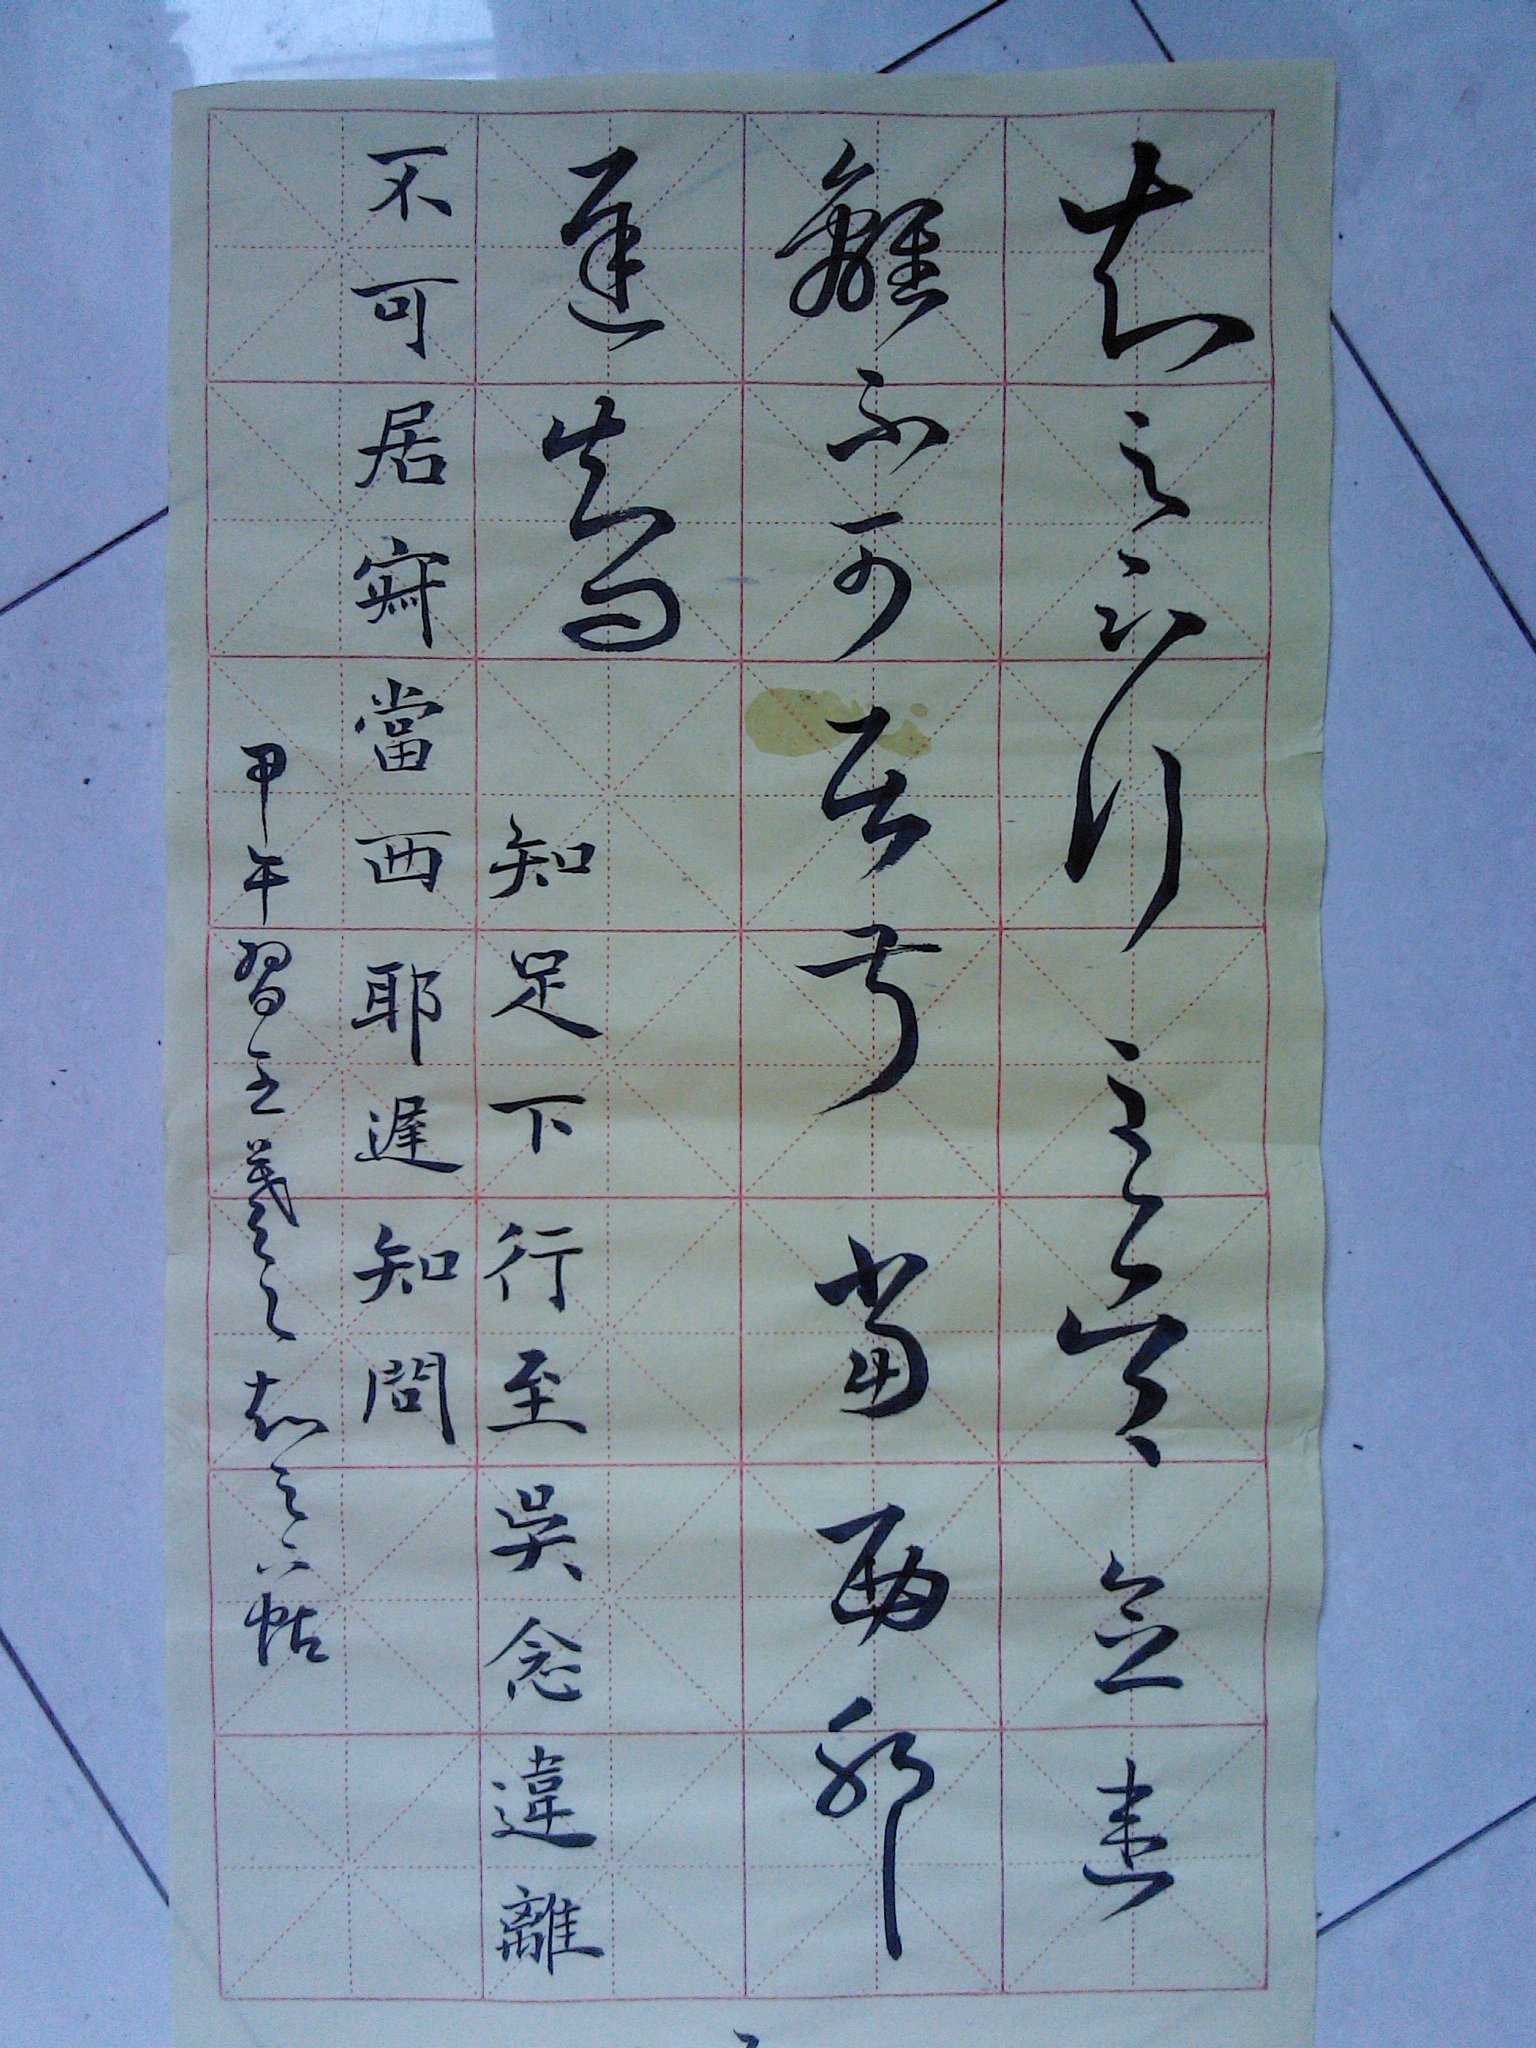 知足下行至吳念違
離不可居叔當西耶
遲知問
知足下行至吳念違離
不可居叔當西耶遲知問
甲午習王羲之知足下帖